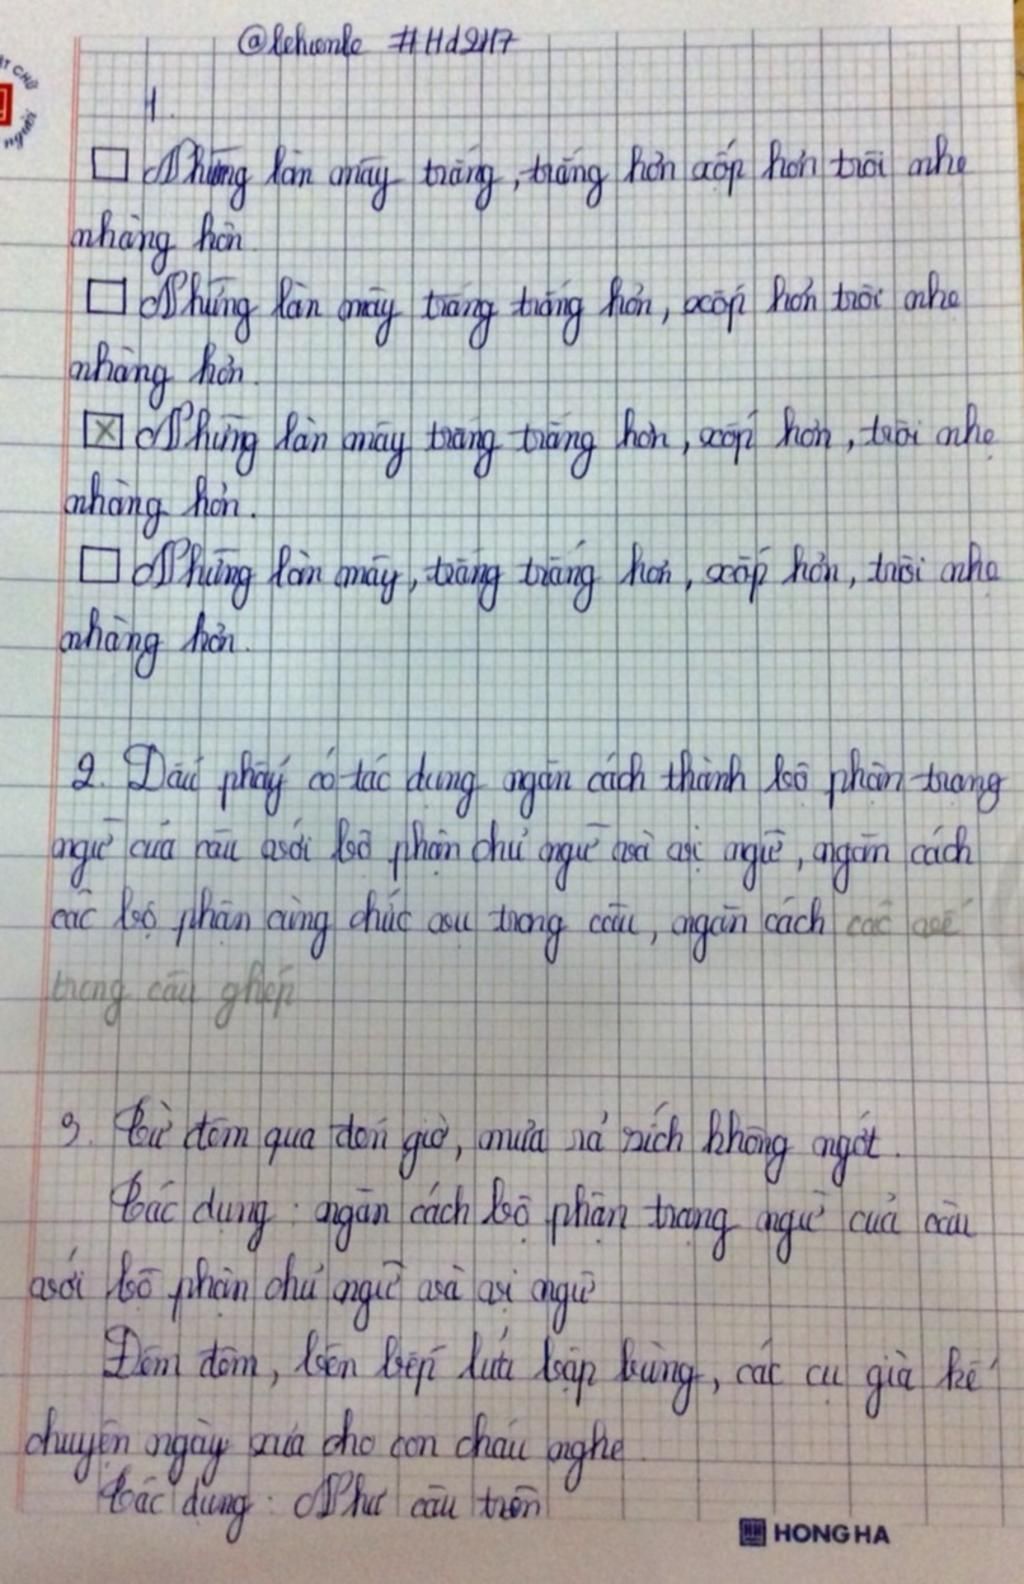 @lehuonle #Hd2117
1.
Những làn mây trắng, trắng hơn xốp hơn trôi nhẹ
nhàng hơn
Những làn mây trắng trắng hơn, xốp hơn trôi nhẹ
nhàng hơn.
Những làn mây trắng trắng hơn, xốp hơn, trôi nhẹ
nhàng hơn.
Những làn mây, trắng trắng hơn, xốp hơn, trôi nhẹ
nhàng hơn.
2. Dấu phẩy có tác dụng ngăn cách thành bộ phận trạng
ngữ của câu với bộ phận chủ ngữ và vị ngữ, ngăn cách
các bộ phận cùng chức vụ trong câu, ngăn cách các vế
trong câu ghép
3. Từ đêm qua đến giờ, mưa rả rích không ngớt.
Tác dụng: ngăn cách bộ phận trạng ngữ của câu
với bộ phận chủ ngữ và vị ngữ
Đêm đêm, bên bếp lửa bập bùng, các cụ già kể
chuyện ngày xưa cho con cháu nghe.
Tác dụng: Như câu trên
HONG HA